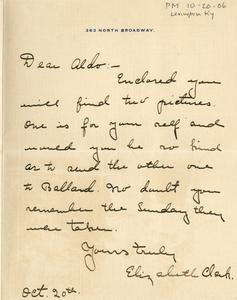 PM 10-20-06
Lexington Ky
363 NORTH BROADWAY.
Dear Aldo:-
Enclosed you
will find two pictures.
One is for your self and
would you be so kind
as to send the other one
to Ballard. No doubt you
remember the Sunday they
were taken.
Yours truly
Elizabeth Clark.
Oct. 20th.